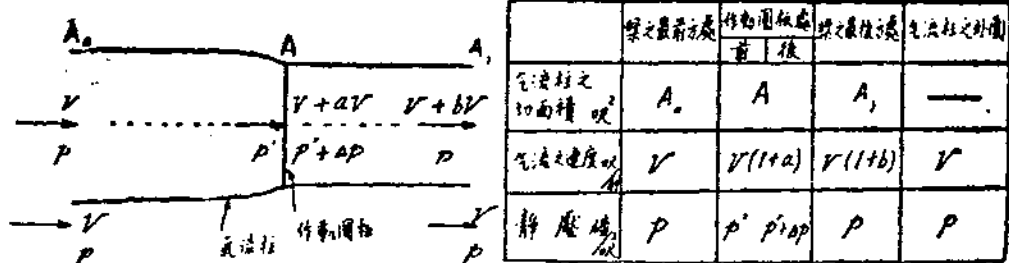 A₀ A A₁
V V+aV V+bV
p p' p'+Δp p
V V
p p
氣流柱 作動圓柱
槳之最前方處 作動圓板處 槳之最後方處 气流柱之外圍
前 後
气流柱之
切面積 呎² A₀ A A₁ —
气流之速度 呎/秒 V V(1+a) V(1+b) V
靜壓 磅/呎² P p' p'+Δp P P